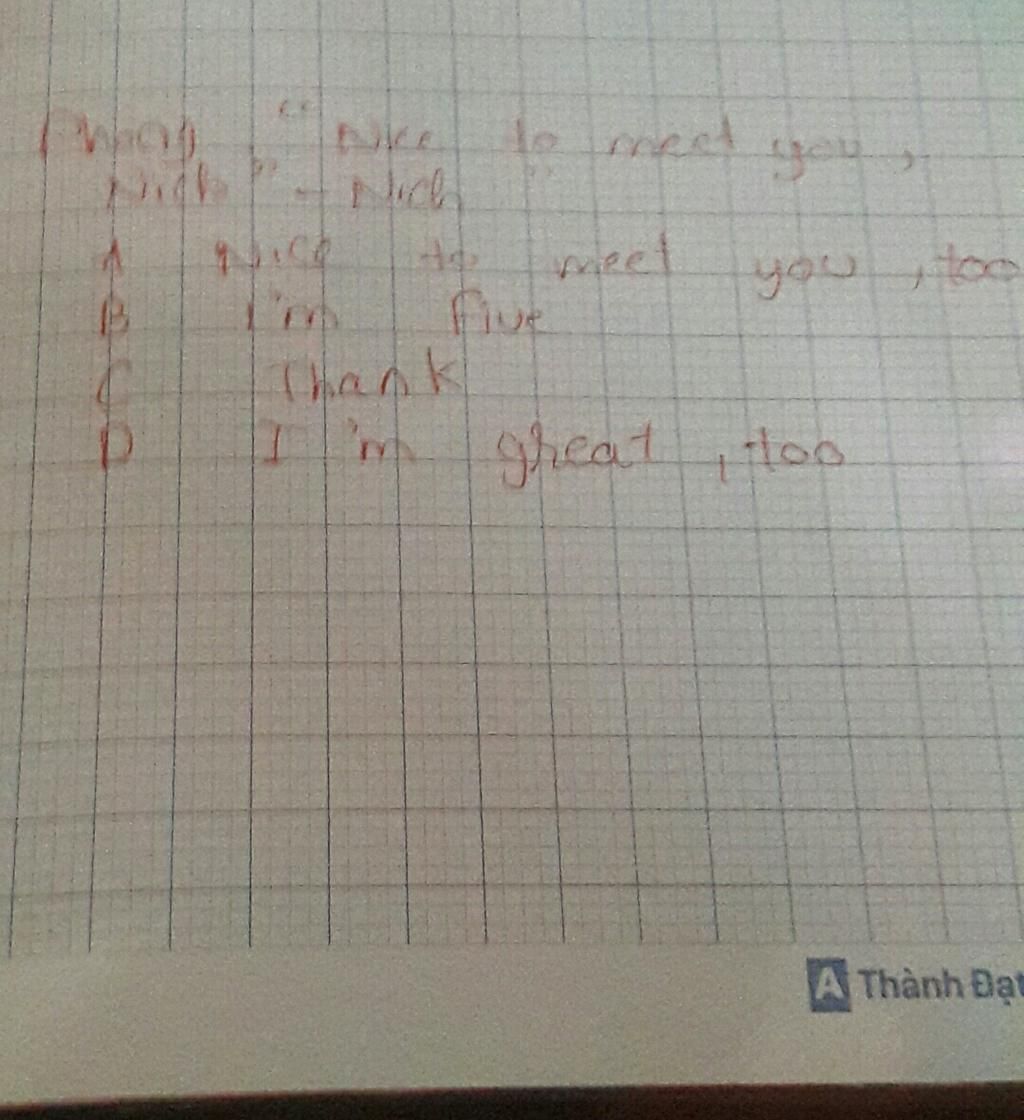 Phong "Nice to meet you,
Nick" - Nick "
A Nice to meet you, too
B I'm five
C Thank
D I'm gheat, too
A Thành Đạt